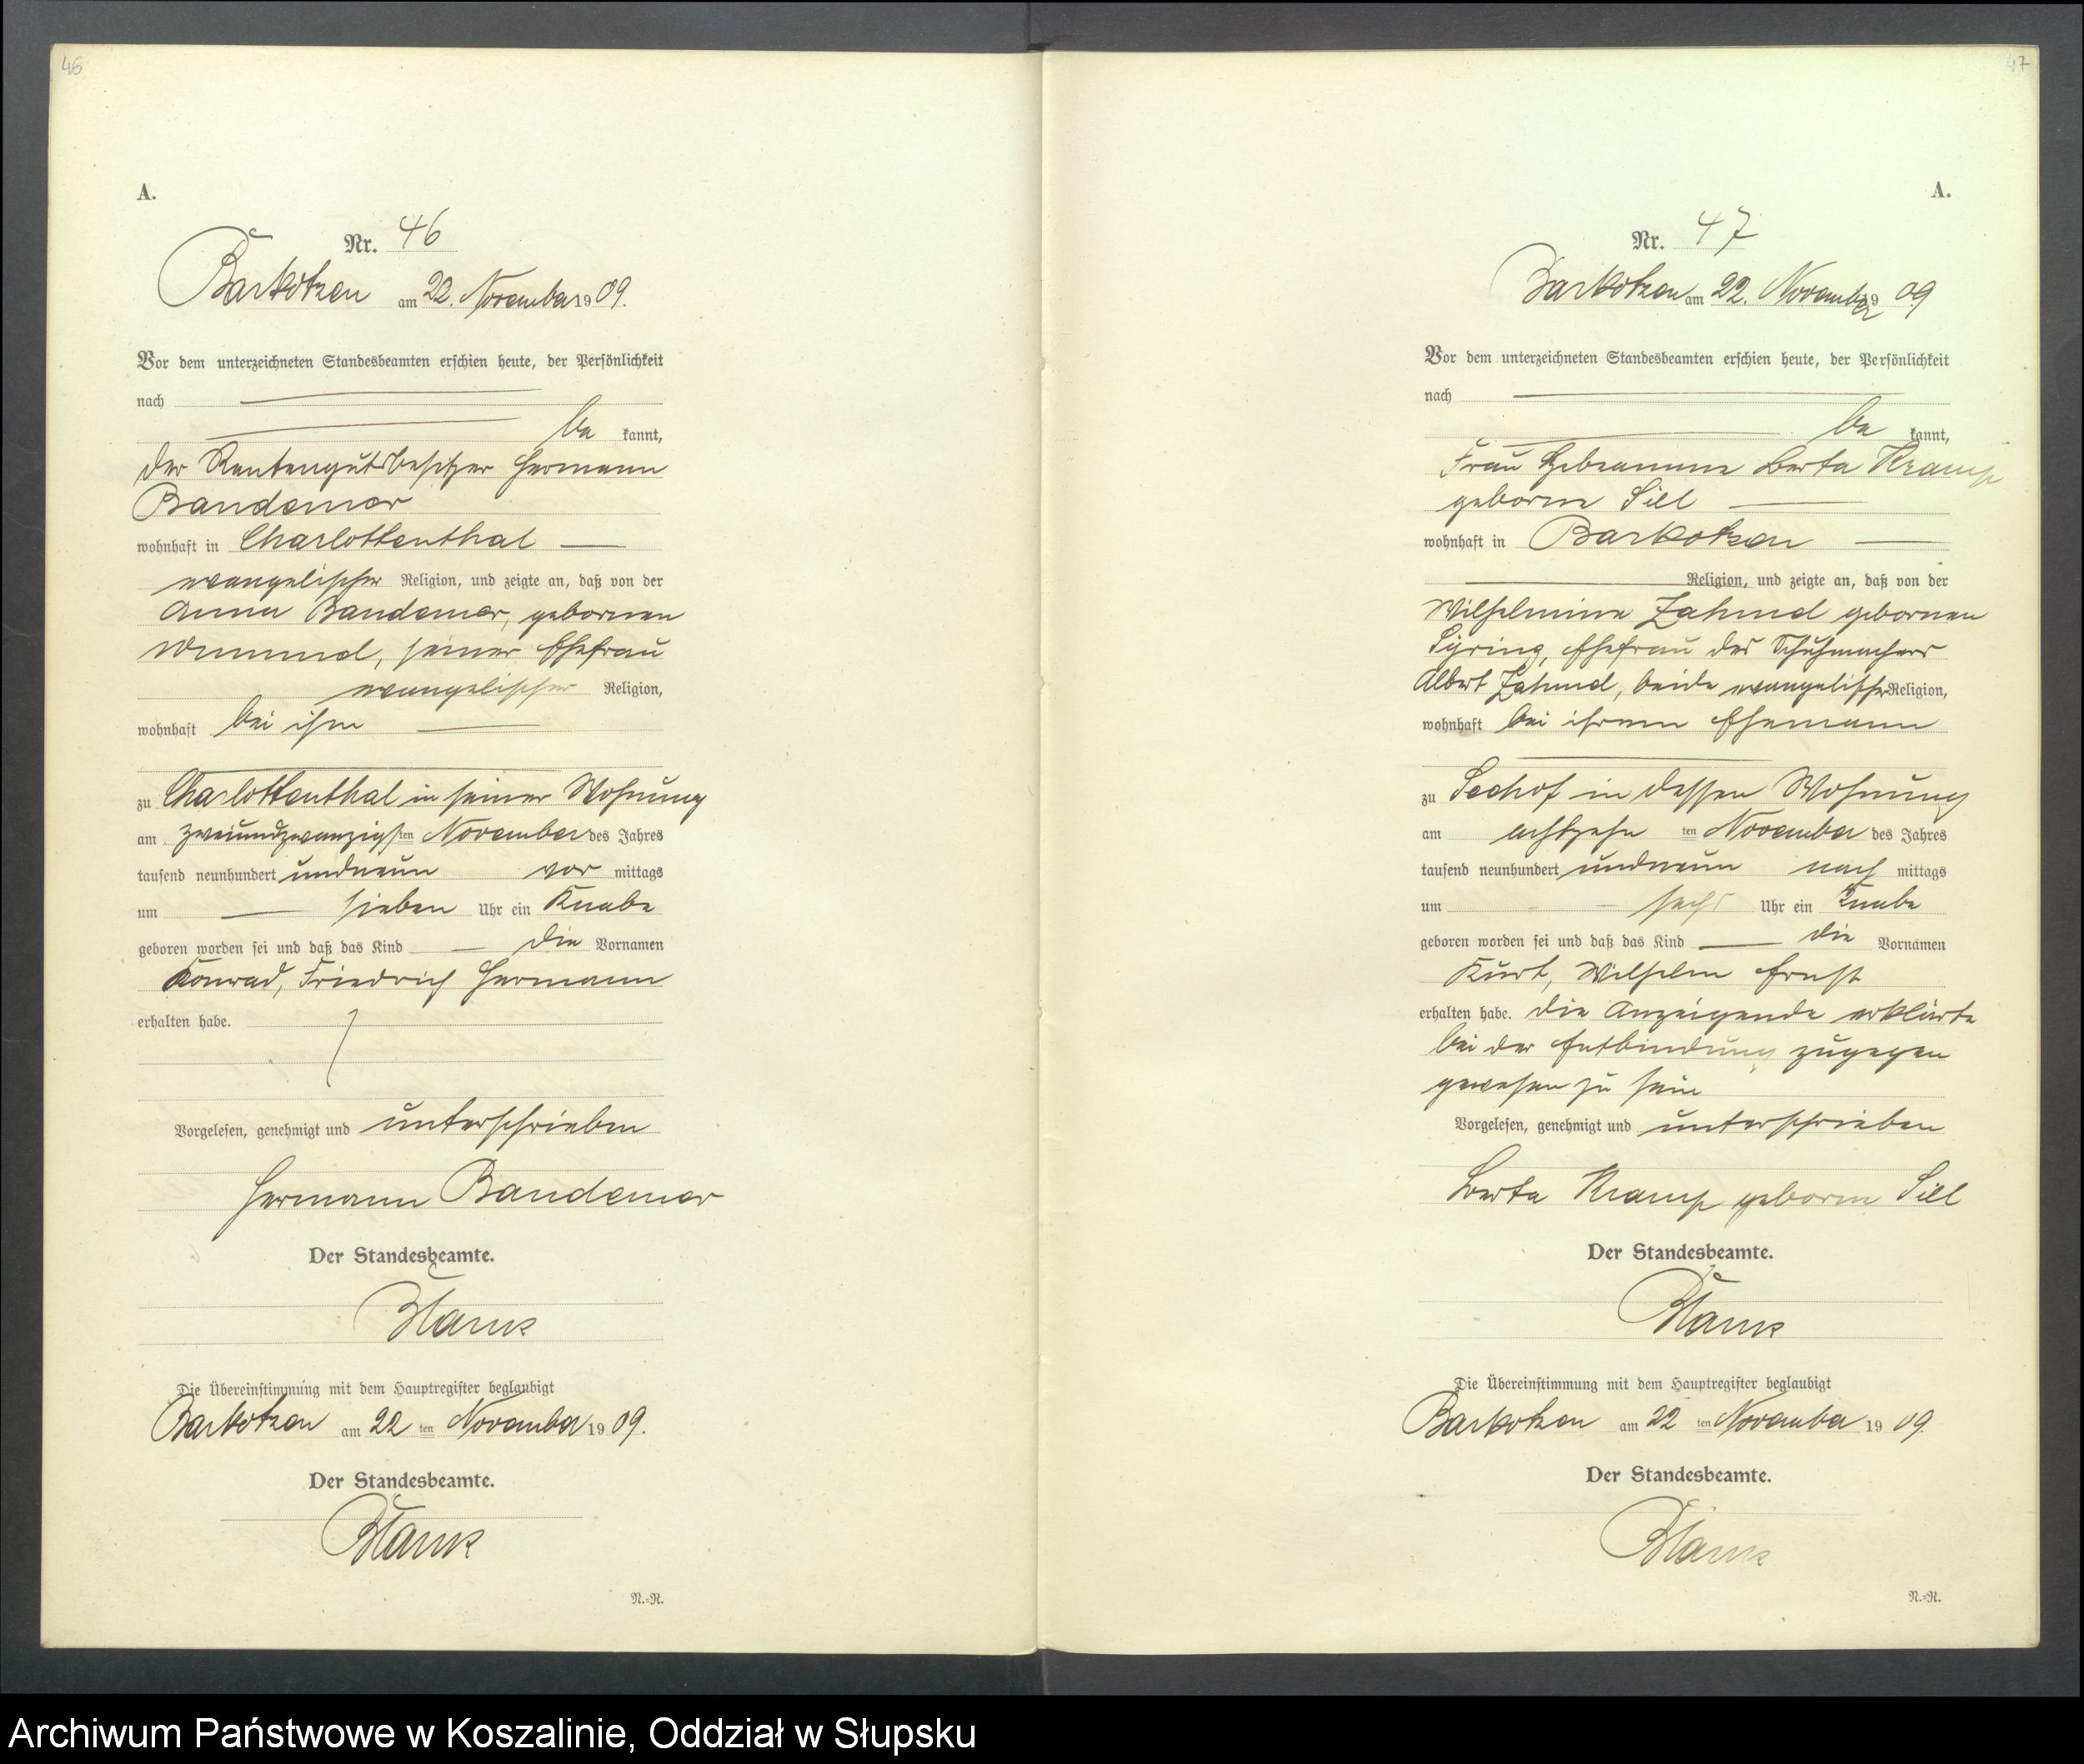 46
A.
Nr. 46
Barkotzen am 22. November 1909.
Vor dem unterzeichneten Standesbeamten erschien heute, der Persönlichkeit
nach
be kannt,
der Rentengutsbesitzer Hermann
Bandemer
wohnhaft in Charlottenthal
evangelischer Religion, und zeigte an, daß von der
Anna Bandemer, gebornen
seiner Ehefrau
evangelischer Religion,
wohnhaft bei ihm
zu Charlottenthal in seiner Wohnung
am zweiundzwanzigsten November des Jahres
tausend neunhundert undneun vor mittags
um sieben Uhr ein Knabe
geboren worden sei und daß das Kind die Vornamen
Konrad, Friedrich Hermann
erhalten habe.
Vorgelesen, genehmigt und unterschrieben
Hermann Bandemer
Der Standesbeamte.
Die Übereinstimmung mit dem Hauptregister beglaubigt
Barkotzen am 22 ten November 1909.
Der Standesbeamte.
N.=R.
47
A.
Nr. 47
Barkotzen am 22. November 1909
Vor dem unterzeichneten Standesbeamten erschien heute, der Persönlichkeit
nach
be kannt,
Frau Hebeamme Berta Kramp
geborne Sill
wohnhaft in Barkotzen
Religion, und zeigte an, daß von der
Wilhelmine Zahnd gebornen
Syring, Ehefrau des Schuhmachers
Albert Zahnd, beide evangelischer Religion,
wohnhaft bei ihrem Ehemann
zu Seehof in dessen Wohnung
am achtzehn ten November des Jahres
tausend neunhundert undneun nach mittags
um sechs Uhr ein Knabe
geboren worden sei und daß das Kind die Vornamen
Kurt, Wilhelm Ernst
erhalten habe. Die Anzeigende erklärte
bei der Entbindung zugegen
gewesen zu sein
Vorgelesen, genehmigt und unterschrieben
Berta Kramp geborne Sill
Der Standesbeamte.
Die Übereinstimmung mit dem Hauptregister beglaubigt
Barkotzen am 22 ten November 1909.
Der Standesbeamte.
N.=R.
Archiwum Państwowe w Koszalinie, Oddział w Słupsku